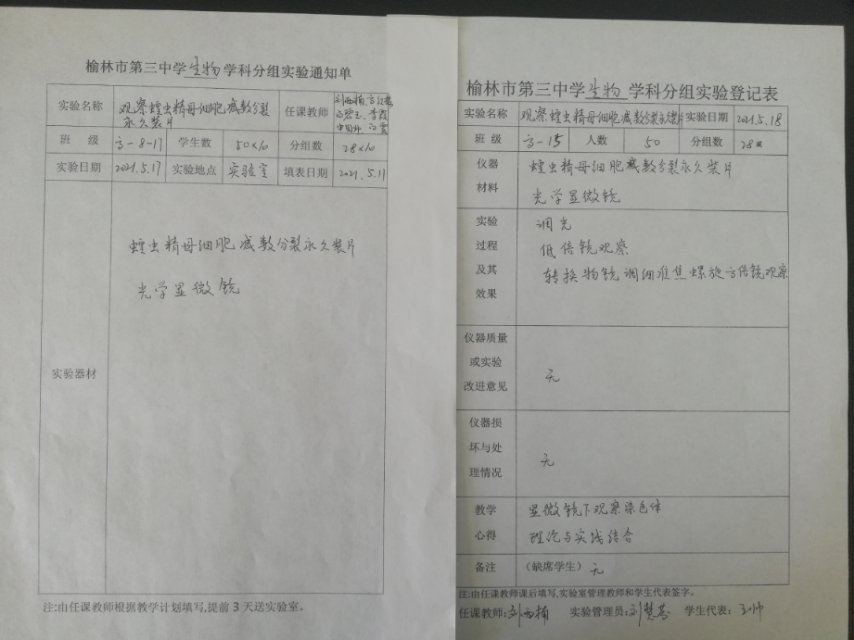 榆林市第三中学生物学科分组实验通知单
实验名称 观察蝗虫精母细胞减数分裂永久装片 任课教师
班 级 高-8-17 学生数 50×10 分组数 28×10
实验日期 2021.5.17 实验地点 实验室 填表日期 2021.5.11
实验器材
蝗虫精母细胞减数分裂永久装片
光学显微镜
注:由任课教师根据教学计划填写,提前 3 天送实验室。
榆林市第三中学生物学科分组实验登记表
实验名称 观察蝗虫精母细胞减数分裂永久装片 实验日期 2021.5.18
班 级 高-15 人数 50 分组数 28
仪器
材料
蝗虫精母细胞减数分裂永久装片
光学显微镜
实验
过程
及其
效果
调光
低倍镜观察
转换物镜调细准焦螺旋高倍镜观察
仪器质量
或实验
改进意见
无
仪器损
坏与处
理情况
无
教学
心得
显微镜下观察染色体
理论与实践结合
备注 (缺席学生) 无
注:由任课教师课后填写,实验室管理教师和学生代表签字。
任课教师: 实验管理员: 学生代表: